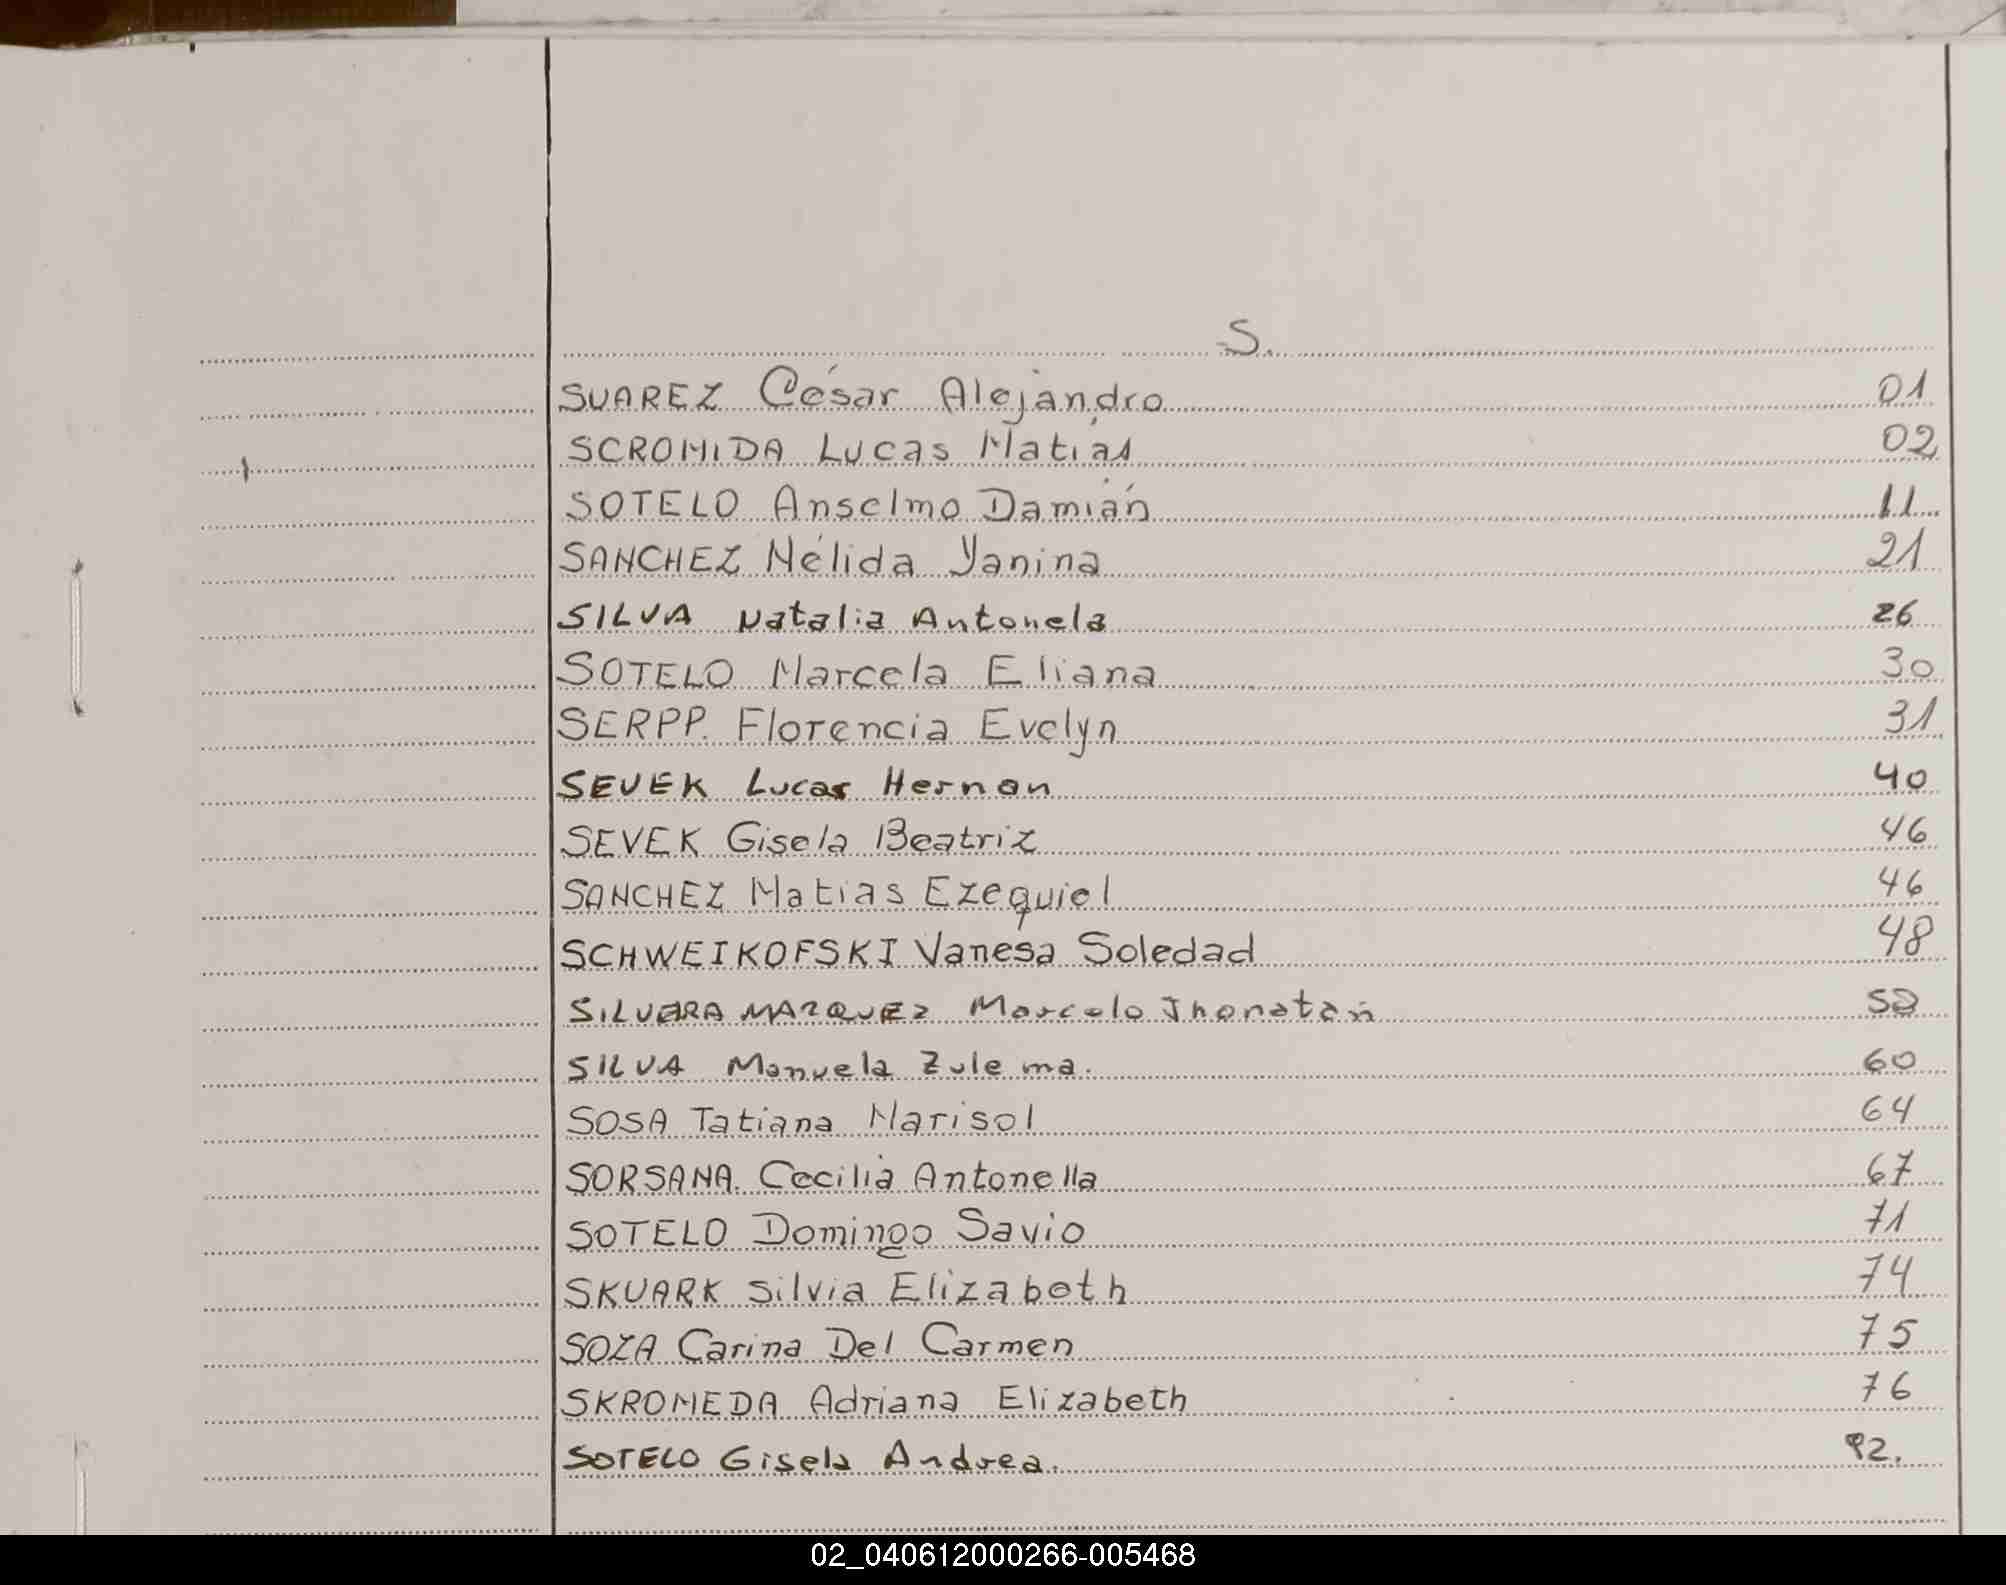 S.
SUAREZ César Alejandro 01
SCROMIDA Lucas Matías 02
SOTELO Anselmo Damián 11
SANCHEZ Nélida Yanina 21
SILVA Natalia Antonela 26
SOTELO Marcela Eliana 30
SERPP. Florencia Evelyn 31
SEVEK Lucas Hernan 40
SEVEK Gisela Beatriz 46
SANCHEZ Matias Ezequiel 46
SCHWEIKOFSKI Vanesa Soledad 48
SILVERA MARQUEZ Marcelo Jhonatan
SILVA Manuela Zulema. 60
SOSA Tatiana Marisol 64
SORSANA. Cecilia Antonella 67
SOTELO Domingo Savio 71
SKUARK Silvia Elizabeth 74
SOZA Carina Del Carmen 75
SKROMEDA Adriana Elizabeth 76
SOTELO Gisela Andrea.
02_040612000266-005468